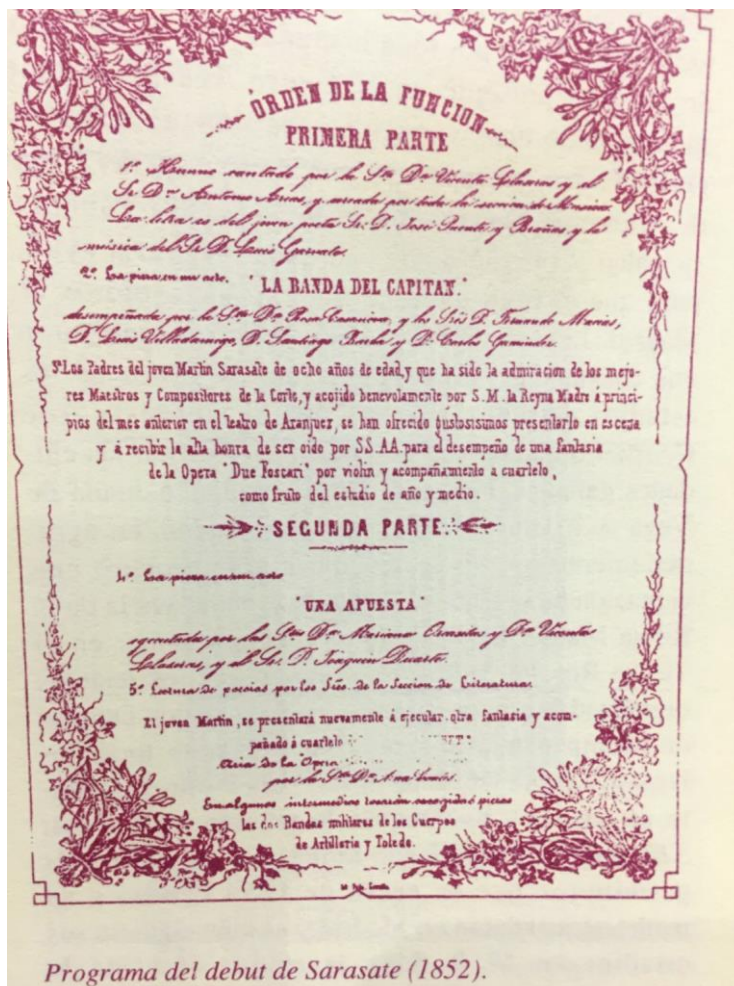 ORDEN DE LA FUNCION
PRIMERA PARTE
1º Himno cantado por la Sta Dª Vicenta y el
Sr. Dn Antonio Arias, y por toda la seccion de Musica
letra es del joven poeta Sr. D. José Puente y Brañas y la
música del Sr. D. Luis
2º La pieza en un acto. "LA BANDA DEL CAPITAN."
desempeñada por la Sta Dª Rosa y los Sres D. Fernando Macias,
D. Luis Villadarnigo, D. Santiago y D. Carlos
3º Los Padres del joven Martin Sarasate de ocho años de edad, y que ha sido la admiracion de los mejo-
res Maestros y Compositores de la Corte, y acojido benevolamente por S.M. la Reyna Madre á princi-
pios del mes anterior en el teatro de Aranjuez, se han ofrecido gustosisimos presentarlo en escena
y á recibir la alta honra de ser oido por SS.AA. para el desempeño de una fantasia
de la Opera "Due Foscari" por violin y acompañamiento a cuarteto,
como fruto del estudio de año y medio.
SEGUNDA PARTE.
4º La pieza en un acto
"UNA APUESTA"
egecutada por las Stas Dª Mariana y Dª Vicenta
y el Sr. D. Joaquin Duarte.
5º Lectura de poesias por los Sres. de la Seccion de Literatura.
El joven Martin, se presentará nuevamente á ejecutar otra fantasia y acom-
pañado á cuarteto
Aria de la Opera
por la Sta Dª Ana
En algunos intermedios tocarán escogidas piezas
las dos Bandas militares de los Cuerpos
de Artilleria y Toledo.
Programa del debut de Sarasate (1852).